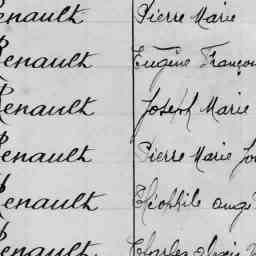 Renault Pierre Marie
Renault Eugène François
Renault Joseph Marie
Renault Pierre Marie
Renault Théophile Ange
Renault Charles